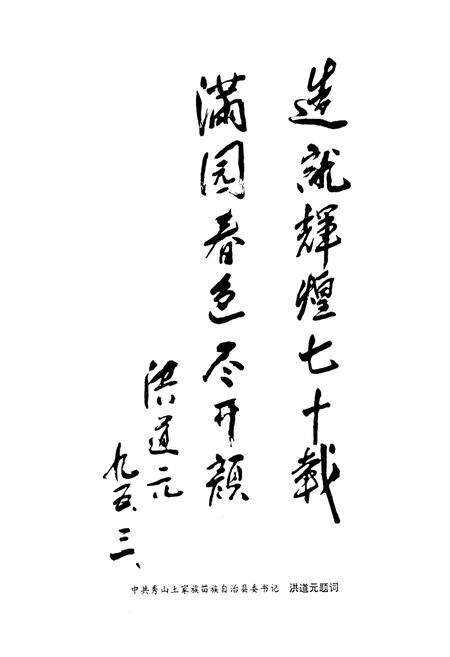 造就輝煌七十載
滿园春色尽开顔
洪道元
九五、三、
中共秀山土家族苗族自治县委书记 洪道元题词